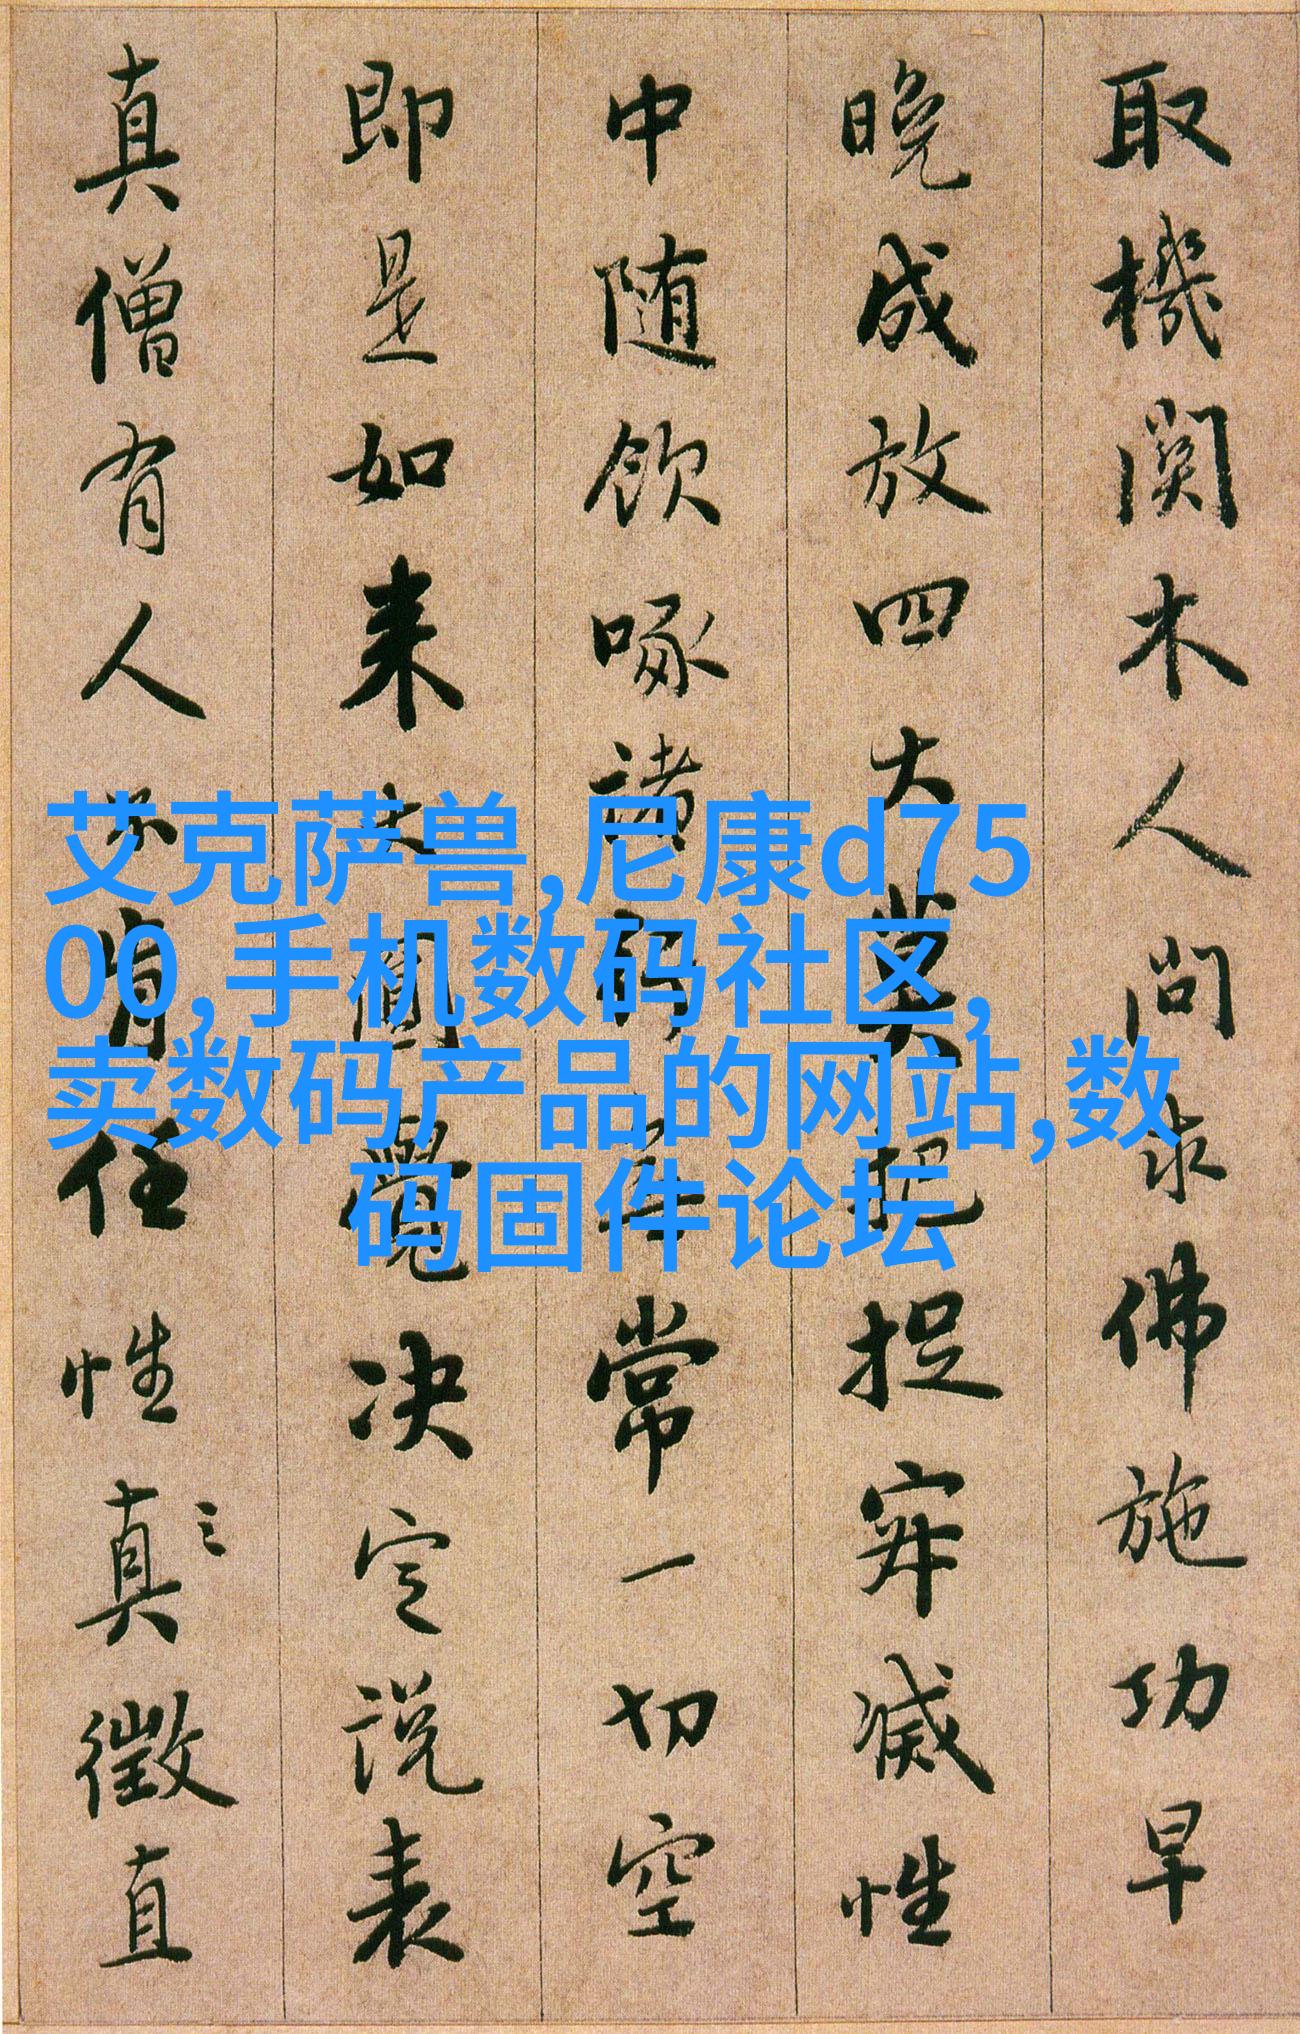 取機関木人問求佛施功早
晚成放四大莫把捉穽滅性
中随飲啄諸行無常一切空
即是如来大圓覺决定說表
真僧有人不肯任性真徵直
艾克萨兽,尼康d75
00,手机数码社区,
卖数码产品的网站,数
码固件论坛